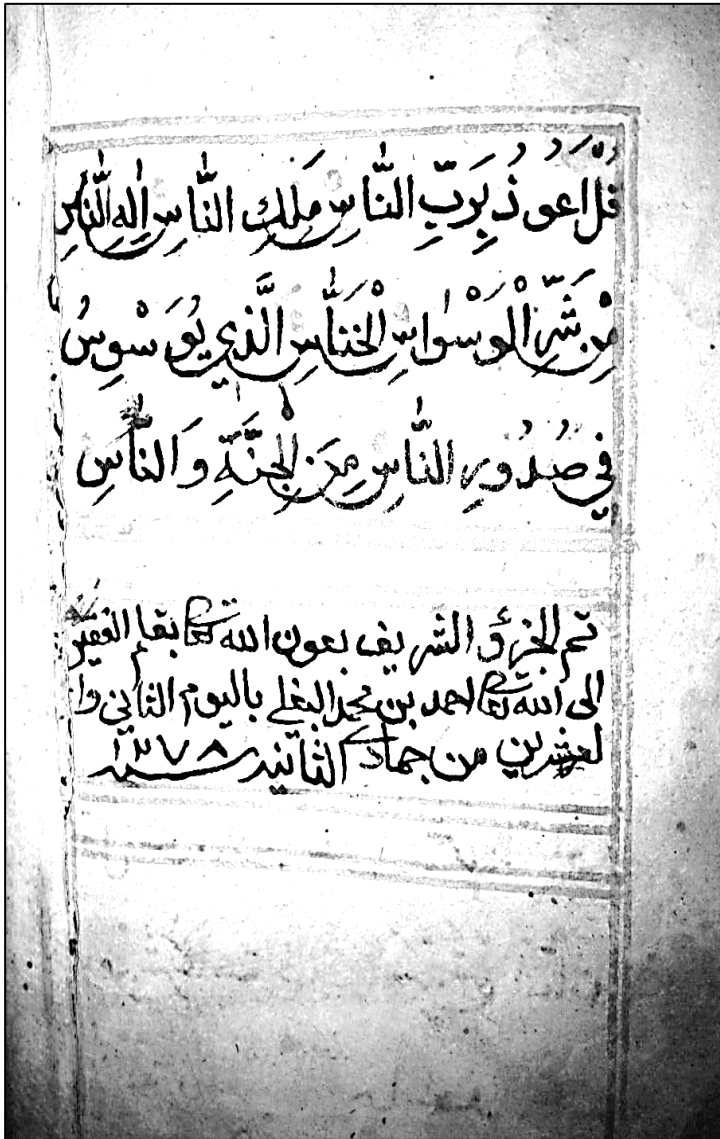 قُلْ اَعُوذُ بِرَبِّ النَّاسِ مَلِكِ النَّاسِ اِلٰهِ النَّاسِ
مِنْ شَرِّ الْوَسْوَاسِ الْخَنَّاسِ الَّذِي يُوَسْوِسُ
فِي صُدُورِ النَّاسِ مِنَ الْجِنَّةِ وَالنَّاسِ
تم الجزؤ الشريف بعون الله تعا بقلم الفقير
الى الله تعا احمد بن محمد البغلي باليوم الثاني وا
لعشرين من جمادى الثانيه سنه ١٢٧٨